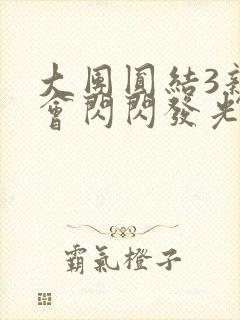 大團圓結3新
會閃閃發光
霸氣橙子